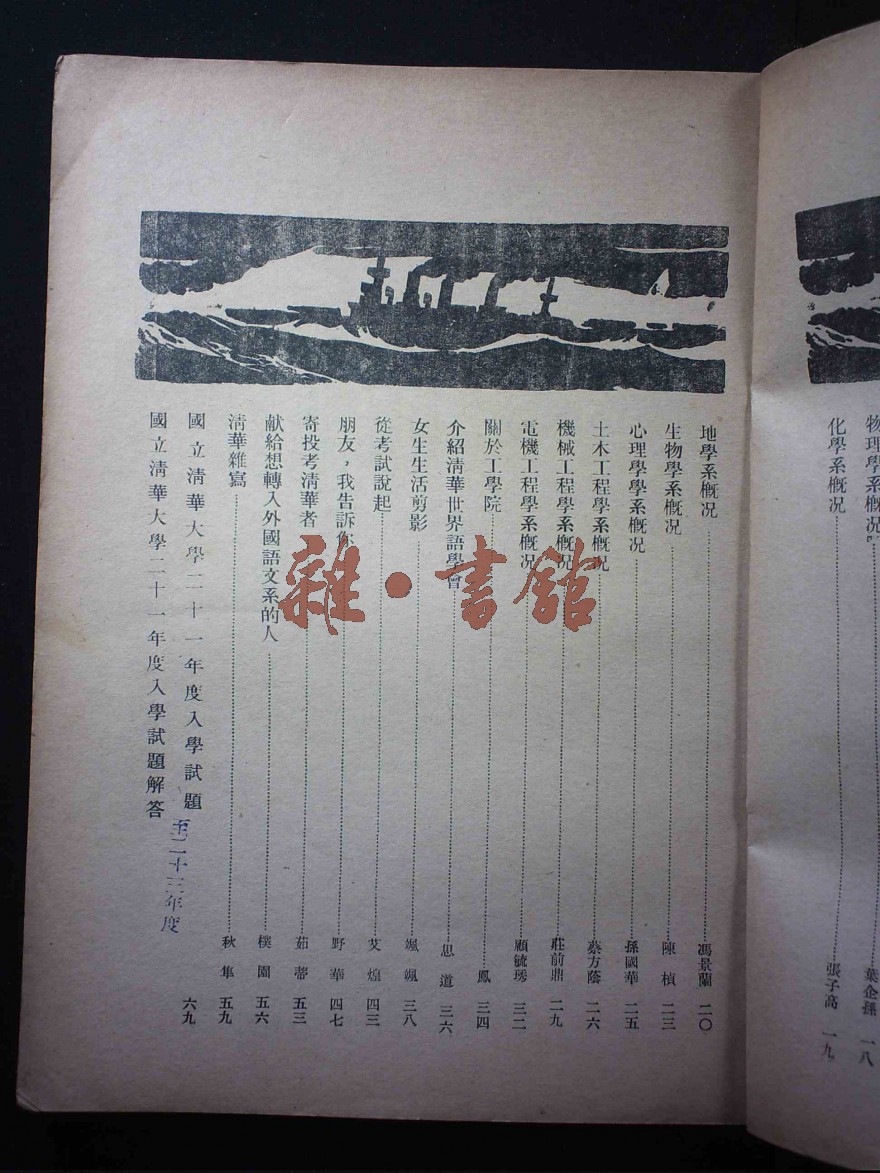 物理學系概况 葉企孫 一八
化學系概况 張子高 一九
地學系概况 馮景蘭 二〇
生物學系概况 陳楨 二三
心理學學系概况 孫國華 二五
土木工程學系概况 蔡方蔭 二六
機械工程學系概况 莊前鼎 二九
電機工程學系概况 顧毓琇 三二
關於工學院 鳳 三四
介紹清華世界語學會 思道 三六
女生生活剪影 颯颯 三八
從考試說起 艾煌 四三
朋友，我告訴你 野華 四七
寄投考清華者 茹蒂 五三
献給想轉入外國語文系的人 樸園 五六
清華雜寫 秋隼 五九
國立清華大學二十一年度入學試題 至二十三年度 六九
國立清華大學二十一年度入學試題解答
雜·書館